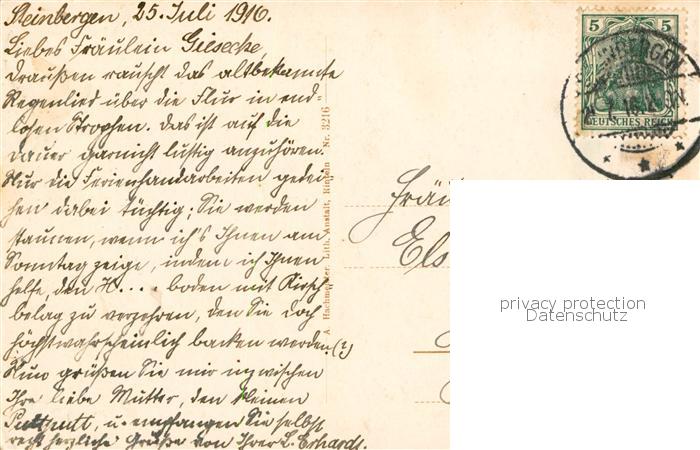 Steinbergen, 25. Juli 1916.
Liebes Fräulein Giesecke,
Draußen rauscht das altbekannte
Regenlied über die Flur in end-
losen Strophen. Das ist auf die
Dauer garnicht lustig anzuhören.
Nur die Ferienhandarbeiten gedei-
hen dabei tüchtig; Sie werden
staunen, wenn ich's Ihnen am
Sonntag zeige, indem ich Ihnen
helfe, den H.... boden mit Kirsch
belag zu verzehren, den Sie doch
höchstwahrscheinlich backen werden(?)
Nun grüßen Sie mir inzwischen
Ihre liebe Mutter, den kleinen
Puttputt, u. empfangen Sie selbst
recht herzliche Grüße von Ihrer L. Erhardt.
A. Lith. Anstalt, Rinteln Nr. 3216
5 5
STEINBERGEN
DEUTSCHES REICH
Fräu
Els
privacy protection
Datenschutz